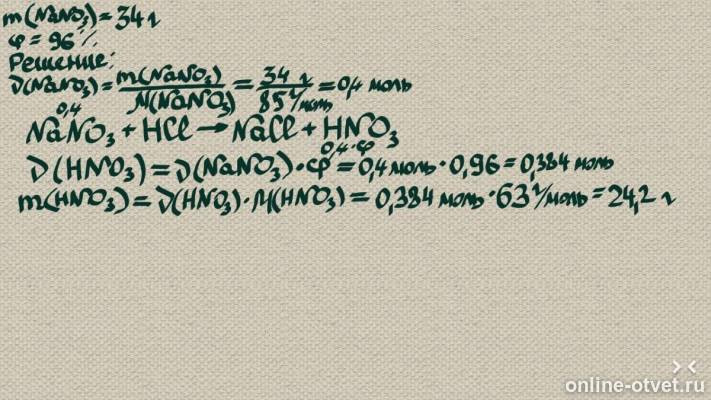 m(NaNO₃) = 34 г
φ = 96 %
Решение:
ν(NaNO₃) = m(NaNO₃) / M(NaNO₃) = 34 г / 85 г/моль = 0,4 моль
0,4
NaNO₃ + HCl → NaCl + HNO₃
0,4·φ
ν(HNO₃) = ν(NaNO₃)·φ = 0,4 моль · 0,96 = 0,384 моль
m(HNO₃) = ν(HNO₃)·M(HNO₃) = 0,384 моль · 63 г/моль = 24,2 г
online-otvet.ru